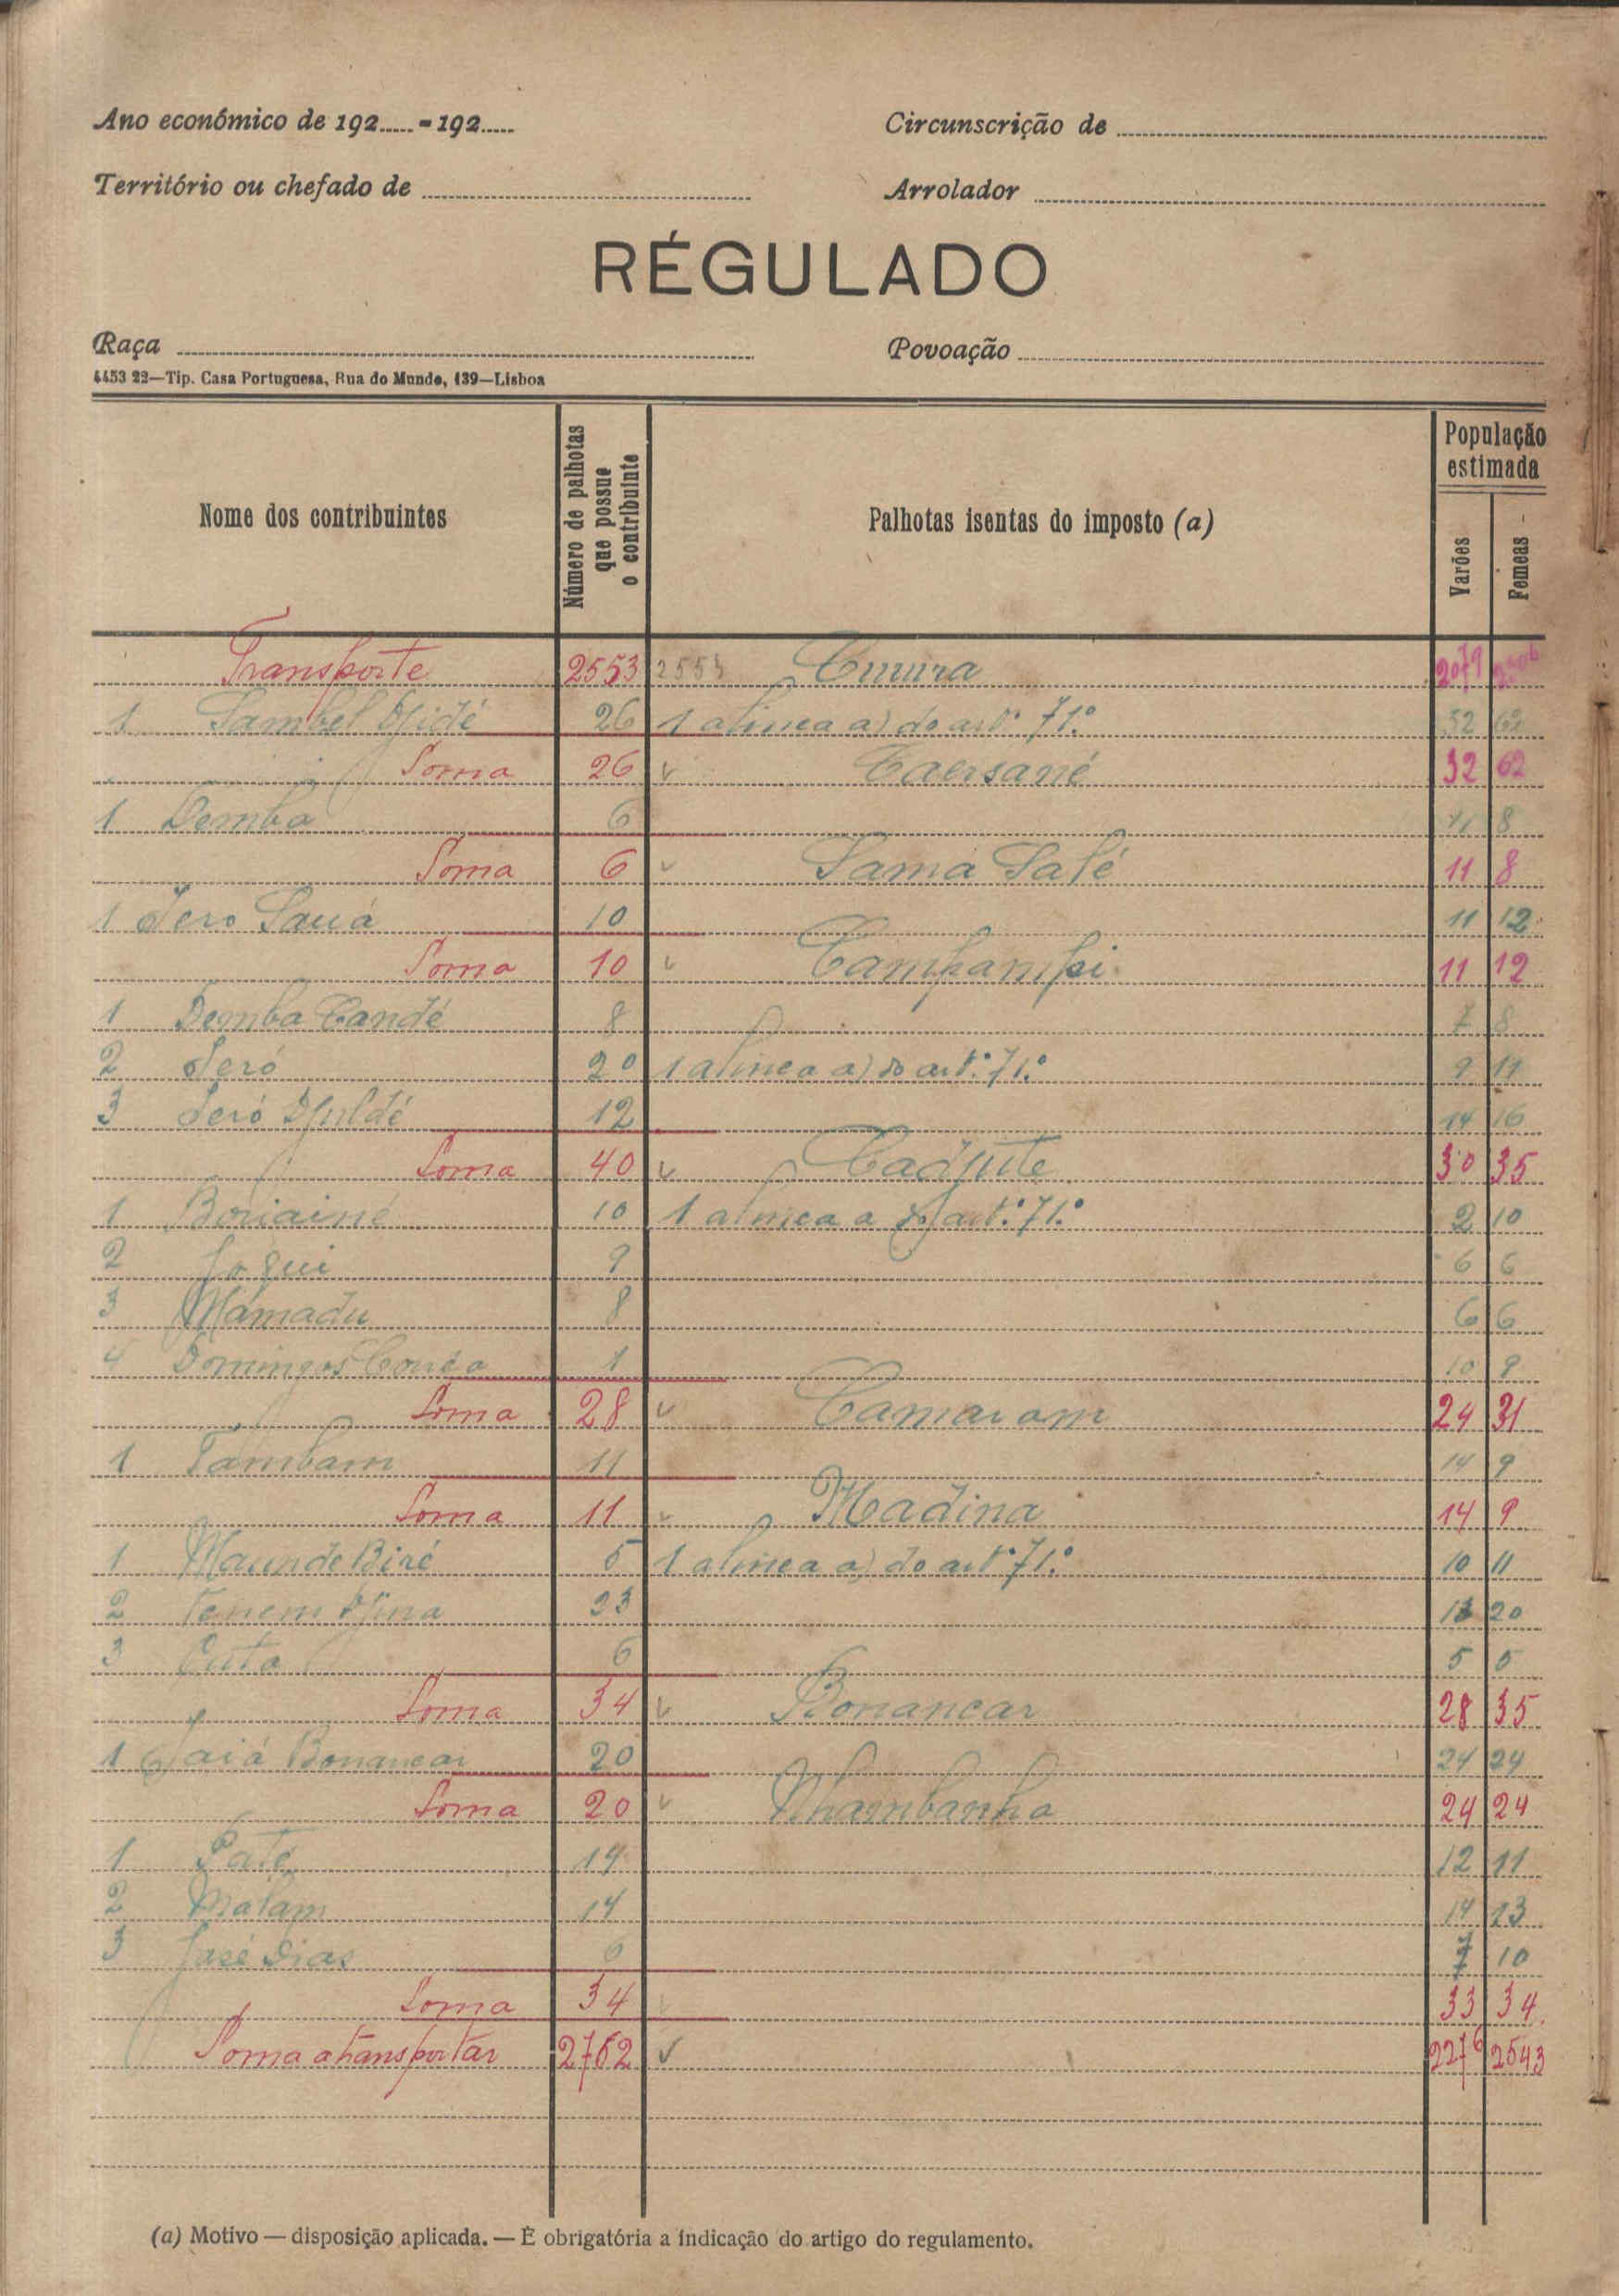 Ano económico de 192..... - 192..... Circunscrição de
Território ou chefado de Arrolador
RÉGULADO
Raça Povoação
4453 22—Tip. Casa Portuguesa, Rua do Mundo, 139—Lisboa
Nome dos contribuintes Número de palhotas que possue o contribuinte Palhotas isentas do imposto (a) População estimada Varões Femeas
Transporte 2553 2553 2079
1 26 1 alinea a) do art.º 71.º 32 62
Soma 26 32 62
1 Demba 6 11 8
Soma 6 Sama 11 8
1 10 11 12
Soma 10 Campampi 11 12
1 Demba Candé 8 7 8
2 Seró 20 1 alinea a) do art.º 71.º 9 11
3 Seró 12 14 16
Soma 40 30 35
1 10 1 alinea a do art.º 71.º 2 10
2 9 6 6
3 Mámadu 8 6 6
4 Domingos 1 10 9
Soma 28 24 31
1 Tambam 11 14 9
Soma 11 Madina 14 9
1 5 1 alinea a) do art.º 71.º 10 11
2 23 13 20
3 6 5
Soma 34 Bonancar 28 35
1 Bonancar 20 24 24
Soma 20 Nhambanha 24 24
1 Paté 14 12 11
2 Malam 14 14 13
3 José Dias 6 7 10
Soma 34 33 34
Soma a transportar 2762 2276 2543
(a) Motivo — disposição aplicada. — É obrigatória a indicação do artigo do regulamento.